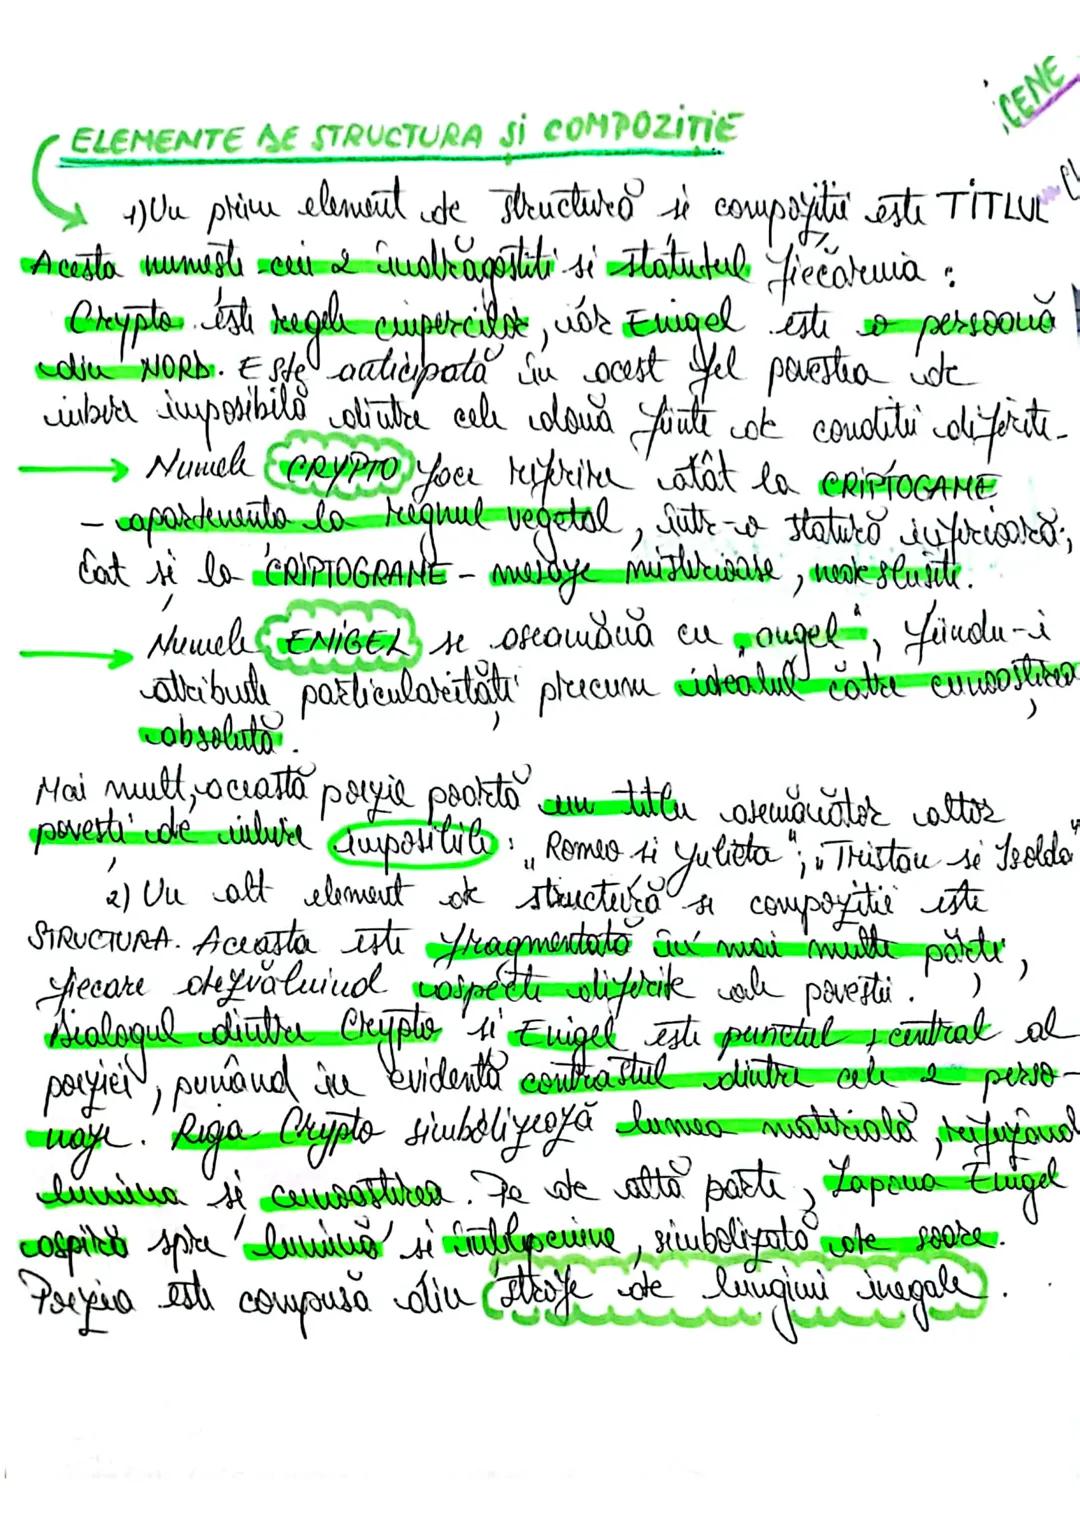 CENE
ELEMENTE DE STRUCTURA și COMPOZIȚIE
1) Un prim element de structură și compoziție este TITLUL
Acesta numește cei 2 îndrăgostiți și statutul fiecăruia :
Crypto este regele ciupercilor, iar Enigel este o persoană
din NORD. Este anticipată în acest fel povestea de
iubire imposibilă dintre cele două ființe de condiții diferite.
Numele CRYPTO face referire atât la CRIPTOGAME
- apartenența la regnul vegetal, într-o statură inferioară;
Cat și la CRIPTOGRAME - mesaje misterioase, neadeslușite.
Numele ENIGEL se aseamănă cu „angel", fiindu-i
atribuite particularități precum idealul către cunoașterea
absolută.
Mai mult, această poezie poartă un titlu asemănător altor
povești de iubire imposibile : „Romeo și Julieta"; „Tristan și Isolda"
2) Un alt element de structură și compoziție este
STRUCTURA. Aceasta este fragmentată în mai multe părți,
fiecare dezvăluind aspecte diferite ale povestii.
Dialogul dintre Crypto și Enigel este punctul central al
poeziei, punând în evidență contrastul dintre cele 2 perso-
naje. Riga Crypto simbolizează lumea materială, refuzând
lumina și cunoașterea. Pe de altă parte, Lapona Enigel
aspiră spre lumină și înțelepciune, simbolizată de soare.
Poezia este compusă din strofe de lungimi inegale.